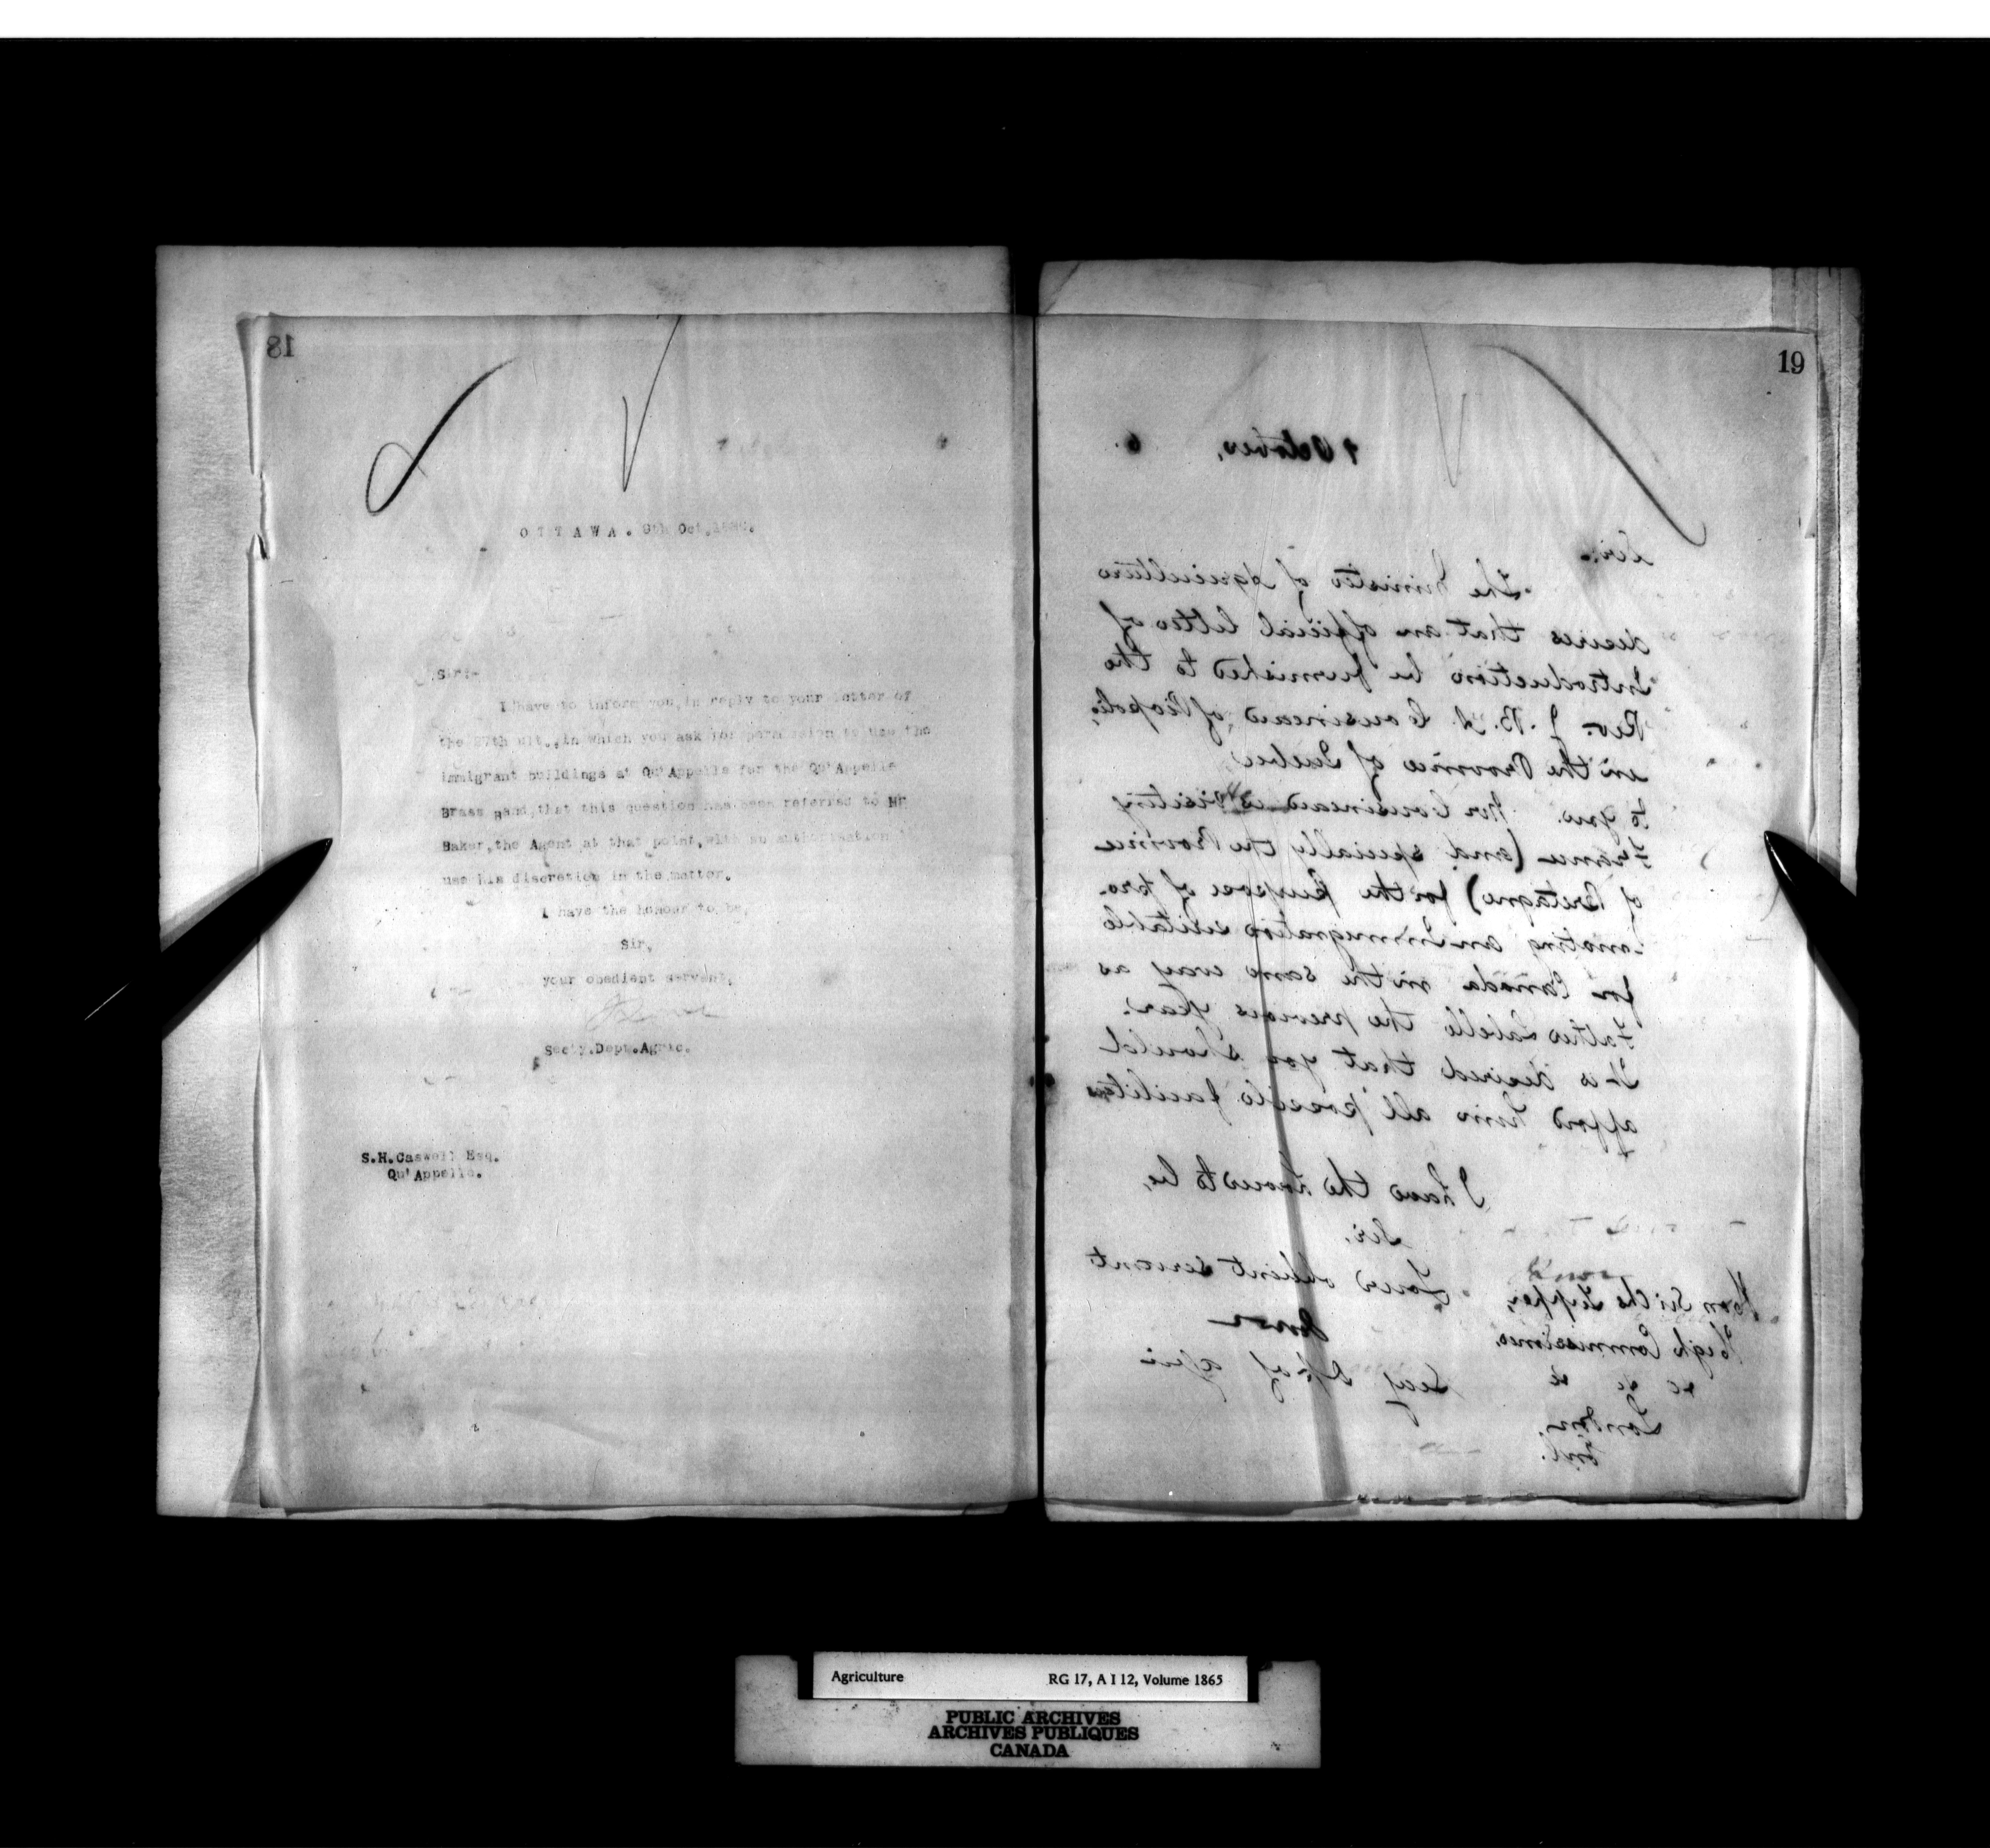 18
OTTAWA. 8th Oct. 1886.
Sir:-
I have to inform you, in reply to your letter of
the 27th ult., in which you ask for permission to use the
immigrant buildings at Qu'Appelle for the Qu'Appelle
Brass Band, that this question has been referred to Mr
Baker, the Agent at that point, with an authorisation
use his discretion in the matter.
I have the honour to be,
Sir,
your obedient servant,
Secy. Dept. Agric.
S.H. Caswell Esq.
Qu'Appelle.
19
9 October, 6.
Sir.
The Minister of Agriculture
desires that an official letter of
Introduction be furnished to the
Rev. J. B. A. Cousineau, of
in the Province of Quebec
to you. Mr Cousineau is visiting
France (and specially the Province
of Bretagne) for the purpose of pro-
-moting an Immigration suitable
for Canada in the same way as
Father Labelle the previous year.
It is desired that you should
afford him all possible facilities
I have the honour to be,
Sir.
Your obedient servant
Secy Dept of Agric
Hon Sir Chs Tupper,
High Commissioner.
&c &c &c
London,
Eng.
Agriculture RG 17, A I 12, Volume 1865
PUBLIC ARCHIVES
ARCHIVES PUBLIQUES
CANADA